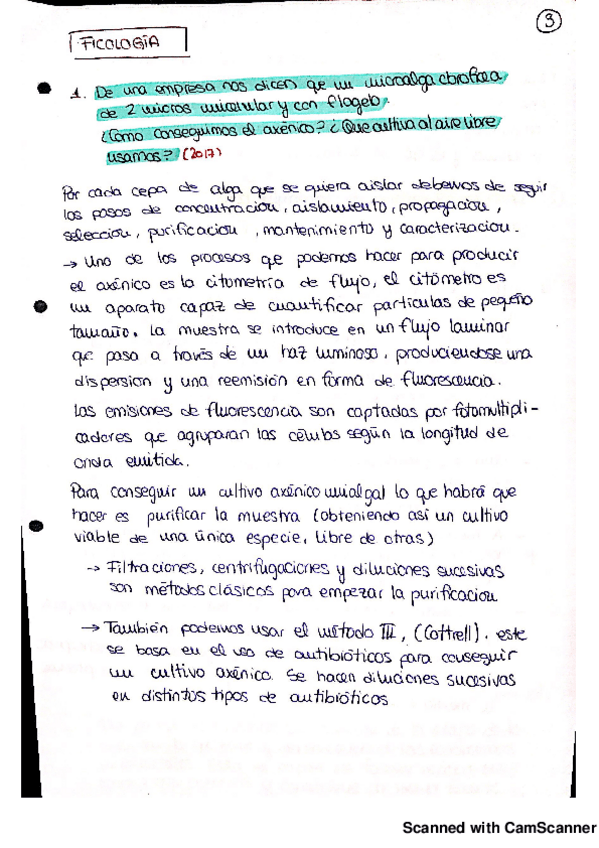 3
FICOLOGÍA
1. De una empresa nos dicen que un microalga clorofícea
de 2 micros unicelular y con flagelo.
¿Como conseguimos el axénico? ¿Que cultivo al aire libre
usamos? (2017)
Por cada cepa de alga que se quiera aislar debemos de seguir
los pasos de concentracion, aislamiento, propagacion,
seleccion, purificacion, mantenimiento y caracterizacion.
→ Uno de los procesos que podemos hacer para producir
el axénico es la citometría de flujo, el citómetro es
un aparato capaz de cuantificar particulas de pequeño
tamaño. La muestra se introduce en un flujo laminar
que pasa a través de un haz luminoso, produciendose una
dispersion y una reemisión en forma de fluorescencia.
Las emisiones de fluorescencia son captadas por fotomultipli-
cadores que agruparan las células según la longitud de
onda emitida.
Para conseguir un cultivo axénico unialgal lo que habrá que
hacer es purificar la muestra (obteniendo así un cultivo
viable de una única especie, libre de otras)
→ Filtraciones, centrifugaciones y diluciones sucesivas
son métodos clásicos para empezar la purificacion
→ También podemos usar el método III, (Cottrell). este
se basa en el uso de antibióticos para conseguir
un cultivo axénico. Se hacen diluciones sucesivas
en distintos tipos de antibióticos
Scanned with CamScanner